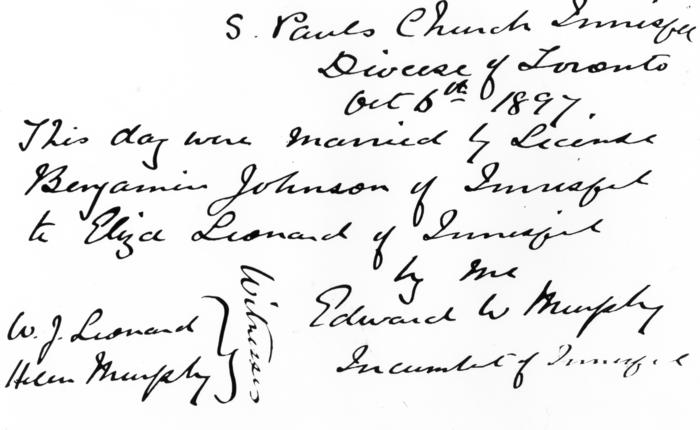 S. Pauls Church Innisfil
Diocese of Toronto
Oct 6th 1897.
This day were married by License
Benjamin Johnson of Innisfil
to Eliza Leonard of Innisfil
by me
Edward W Murphy
Incumbet of Innisfil
W. J. Leonard
Helen Murphy
Witnesses